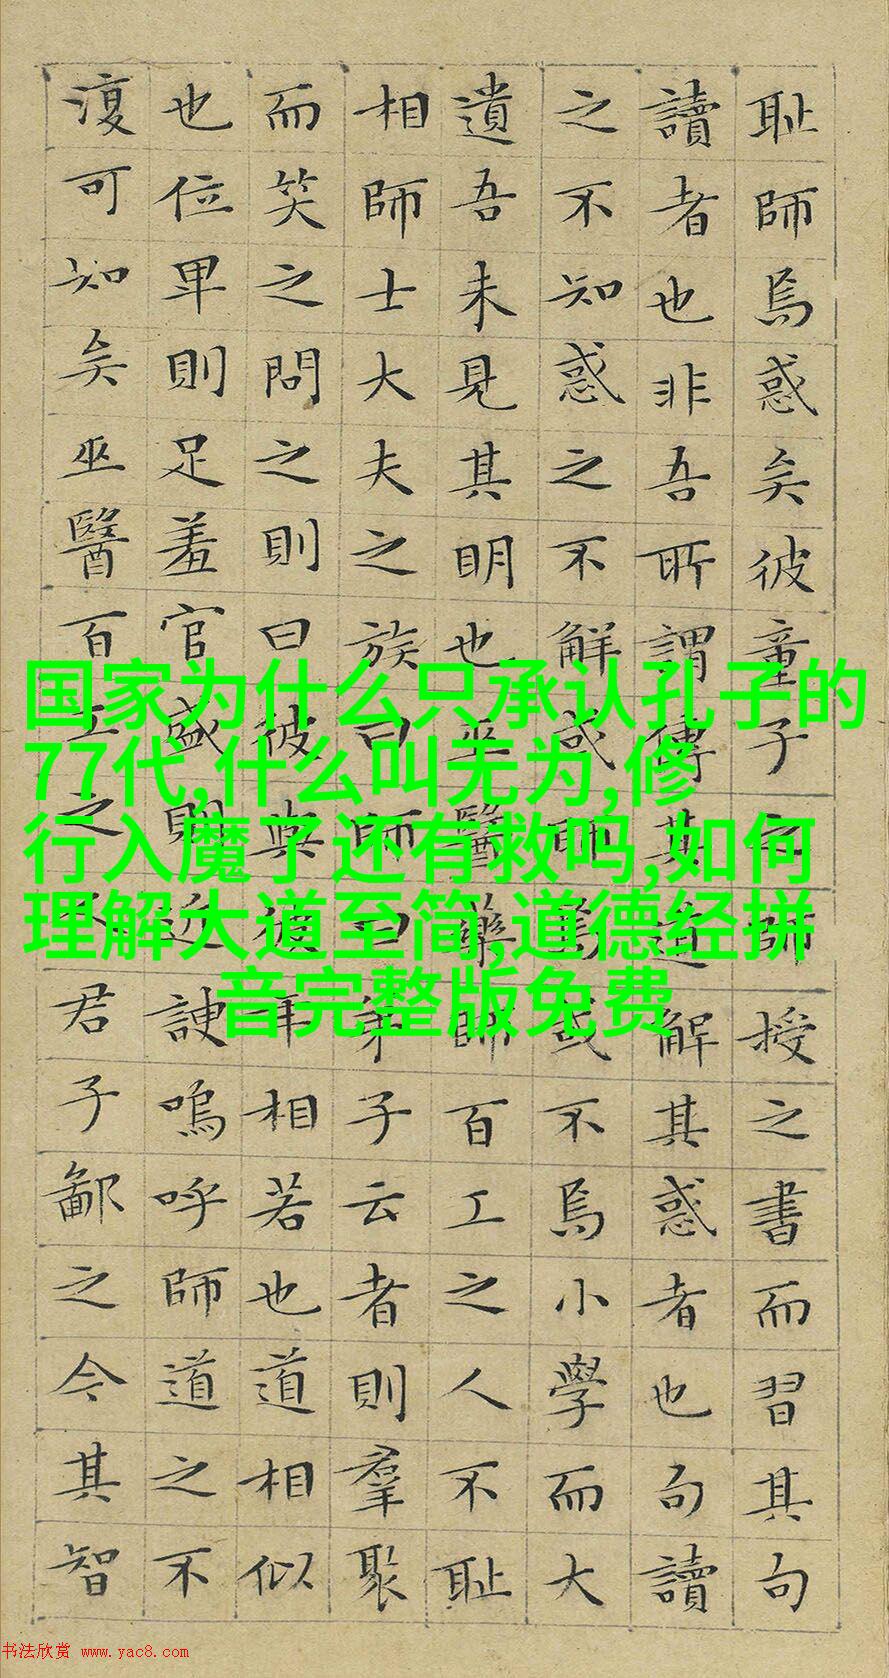 耻師焉惑矣彼童子之師授之書而習其句
讀者也非吾所謂傳其道解其惑者也句讀
之不知惑之不解或師焉或不焉小學而大
遺吾未見其明也巫醫藥師百工之人不耻
相師士大夫之族曰師曰弟子云者則羣聚
而笑之問之則曰彼與彼年相若也道相似
也位卑則足羞官盛則近諛嗚呼師道之不
復可知矣巫醫百工之人君子鄙之今其智
国家为什么只承认孔子的
77代,什么叫无为,修
行入魔了还有救吗,如何
理解大道至简,道德经拼
音完整版免费
书法欣赏 www.yac8.com